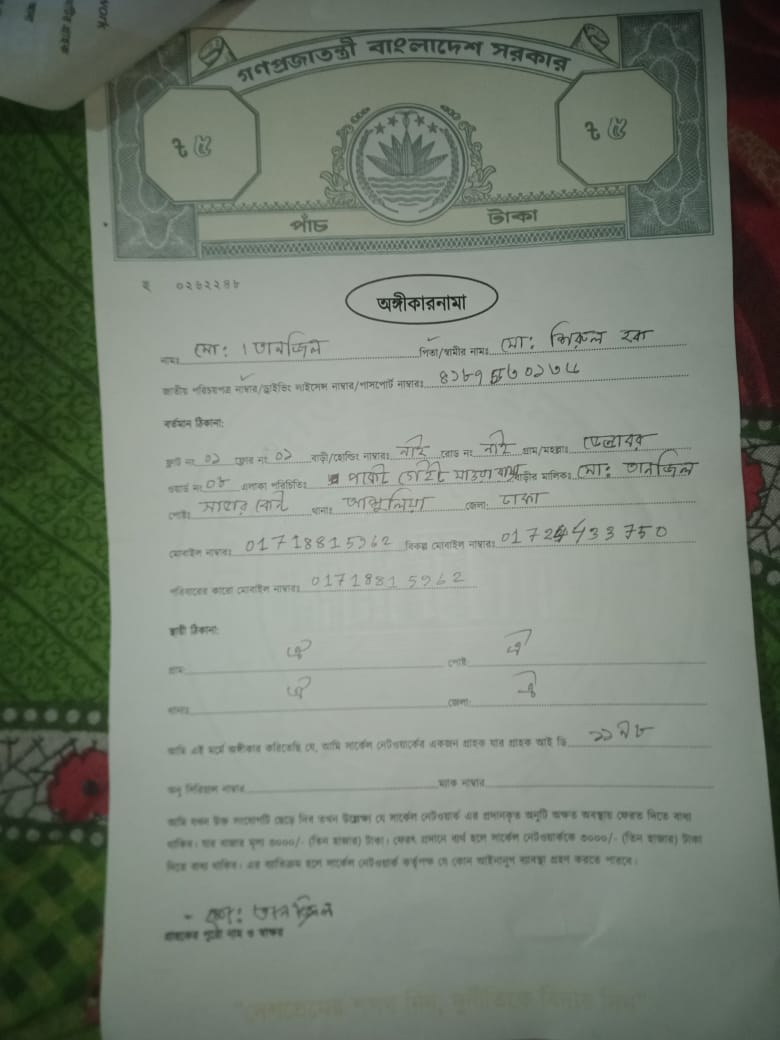 work
গণপ্রজাতন্ত্রী বাংলাদেশ সরকার
৳ ৫ ৳ ৫
পাঁচ টাকা
০২৬২২৪৮
অঙ্গীকারনামা
নামঃ মো: তানজিল পিতা/স্বামীর নামঃ মো:
জাতীয় পরিচয়পত্র নাম্বার/ড্রাইভিং লাইসেন্স নাম্বার/পাসপোর্ট নাম্বারঃ
বর্তমান ঠিকানা:
ফ্লাট নং ০১ ফ্লোর নং ০১ বাড়ী/হোল্ডিং নাম্বারঃ নাই রোড নং নাই গ্রাম/মহল্লাঃ
ওয়ার্ড নং ০৮ এলাকা পরিচিতিঃ বাড়ীর মালিকঃ মো: তানজিল
পোষ্টঃ থানাঃ আশুলিয়া জেলা: ঢাকা
মোবাইল নাম্বারঃ 01718815962 বিকল্প মোবাইল নাম্বারঃ
পরিবারের কারো মোবাইল নাম্বারঃ 01718815962
স্থায়ী ঠিকানা:
গ্রাম: ঐ পোষ্ট: ঐ
থানাঃ ঐ জেলা: ঐ
আমি এই মর্মে অঙ্গীকার করিতেছি যে, আমি সার্কেল নেটওয়ার্কের একজন গ্রাহক যার গ্রাহক আই ডি
অনু সিরিয়াল নাম্বার ম্যাক নাম্বার
আমি যখন উক্ত সংযোগটি ছেড়ে দিব তখন উল্লেখ্য যে সার্কেল নেটওয়ার্ক এর প্রদানকৃত অনুটি অক্ষত অবস্থায় ফেরত দিতে বাধ্য
থাকিব। যার বাজার মূল্য ৩০০০/- (তিন হাজার) টাকা। ফেরৎ প্রদানে ব্যর্থ হলে সার্কেল নেটওয়ার্ককে ৩০০০/- (তিন হাজার) টাকা
দিতে বাধ্য থাকিব। এর ব্যতিক্রম হলে সার্কেল নেটওয়ার্ক কর্তৃপক্ষ যে কোন আইনানুগ ব্যবস্থা গ্রহণ করতে পারবে।
মো: তানজিল
গ্রাহকের পুরো নাম ও স্বাক্ষর